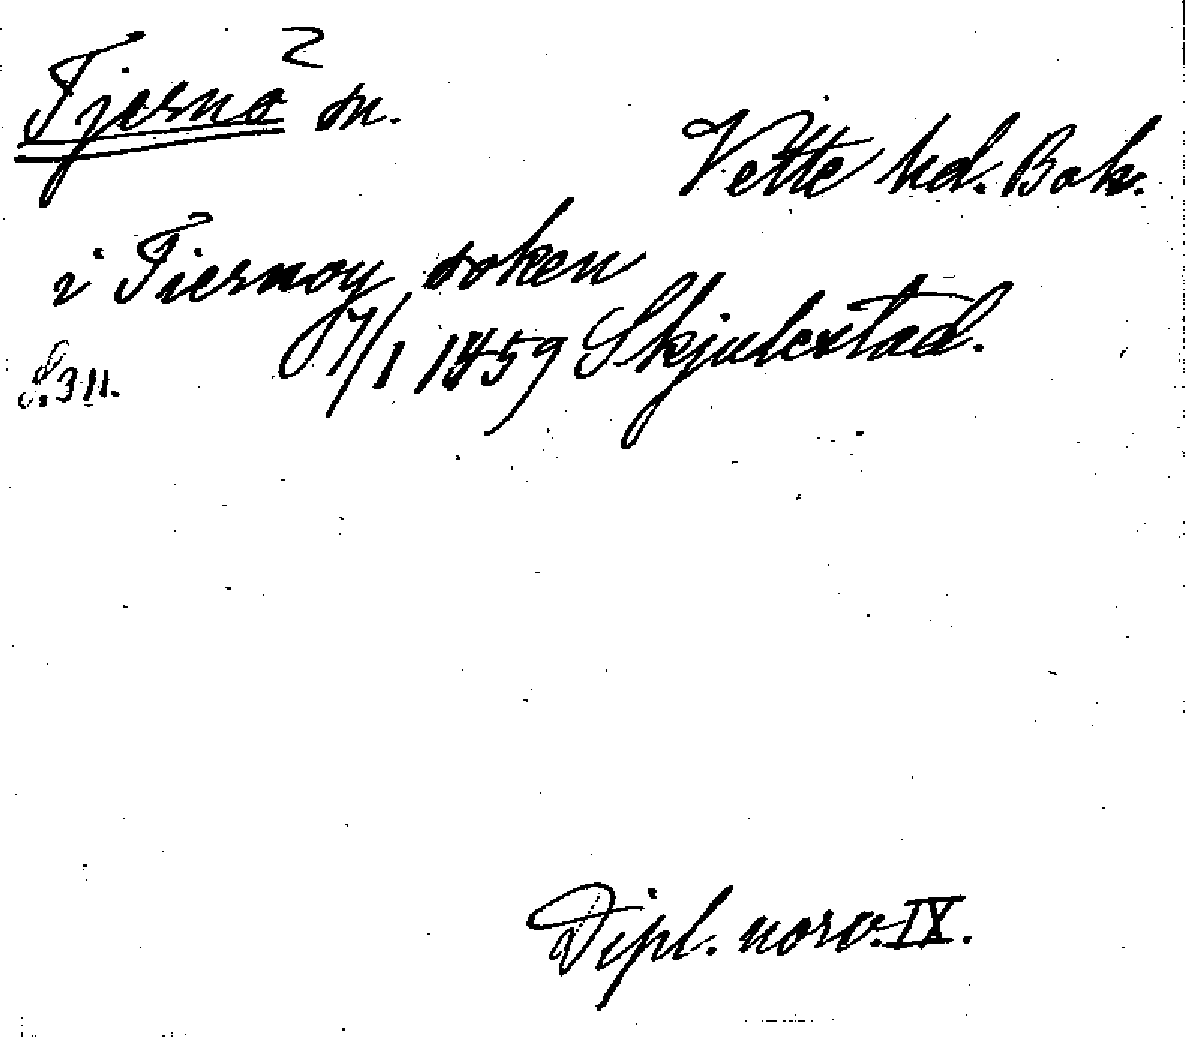 2
Tjernö sn.
Vette hd. Boh.
i Tiernoy soken
O 7/1 1459 Skjulestad.
S. 311.
Dipl. norv. IX.